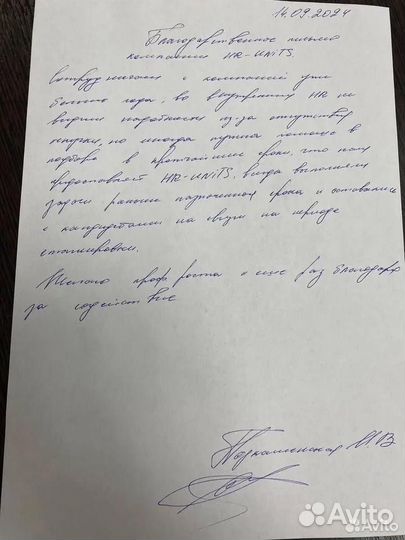 14.09.2024
Благодарственное письмо
компании HR-UNiTS.
Сотрудничаем с компанией уже
больше года, во внутреннем HR не
видим надобности из-за отсутствия
текучки, но иногда нужна помощь в
подборе в кратчайшие сроки, что нам
предоставляет HR-UNiTS, всегда выполняли
задачи раньше назначенного срока и оставались
с кандидатами на связи на периоде
стажировки.
Желаю проф. роста и еще раз благодарю
за содействие
И В
Avito